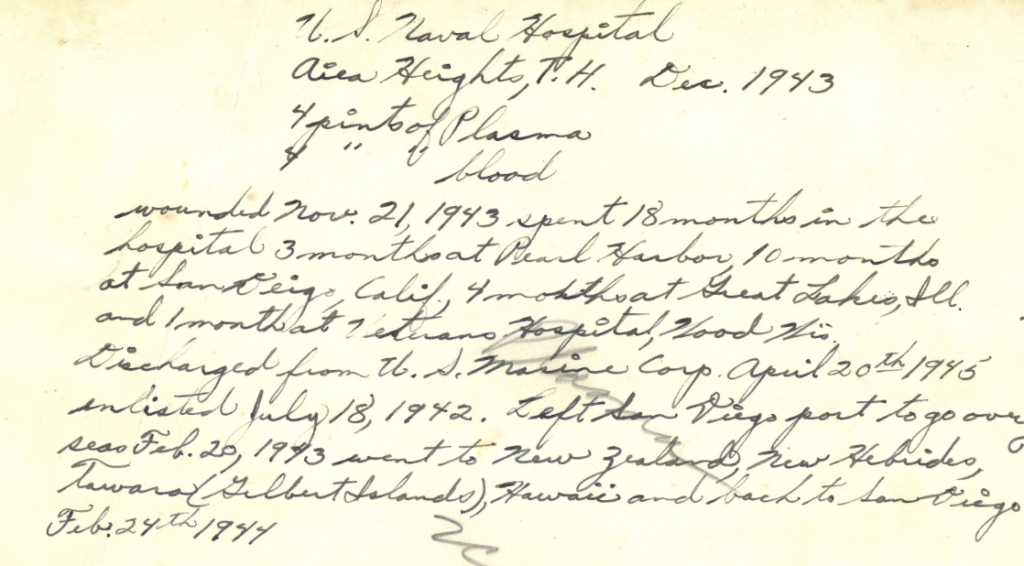 U. S. Naval Hospital
Aiea Heights, T. H. Dec. 1943
4 pints of Plasma
4 " " blood
wounded Nov. 21, 1943 spent 18 months in the
hospital 3 months at Pearl Harbor, 10 months
at San Deigo, Calif., 4 months at Great Lakes, Ill.
and 1 month at Veterans Hospital, Wood Wis.
Discharged from U. S. Marine Corp. April 20th 1945
enlisted July 18, 1942. Left San Diego port to go over
seas Feb. 20, 1943 went to New Zealand, New Hebrides,
Tawara (Gilbert Islands), Hawaii and back to San Diego
Feb. 24th 1944